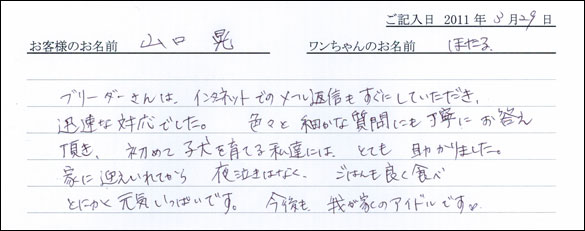 ご記入日 2011年3月29日
お客様のお名前 山口 晃 ワンちゃんのお名前 ほたる
ブリーダーさんは、インタネットでのメール返信もすぐにしていただき、
迅速な対応でした。 色々と細かな質問にも丁寧にお答え
頂き、初めて子犬を育てる私達には、とても助かりました。
家に迎えいれてから 夜泣きはなく、ごはんも良く食べ
とにかく元気いっぱいです。 今後も、我が家のアイドルです。